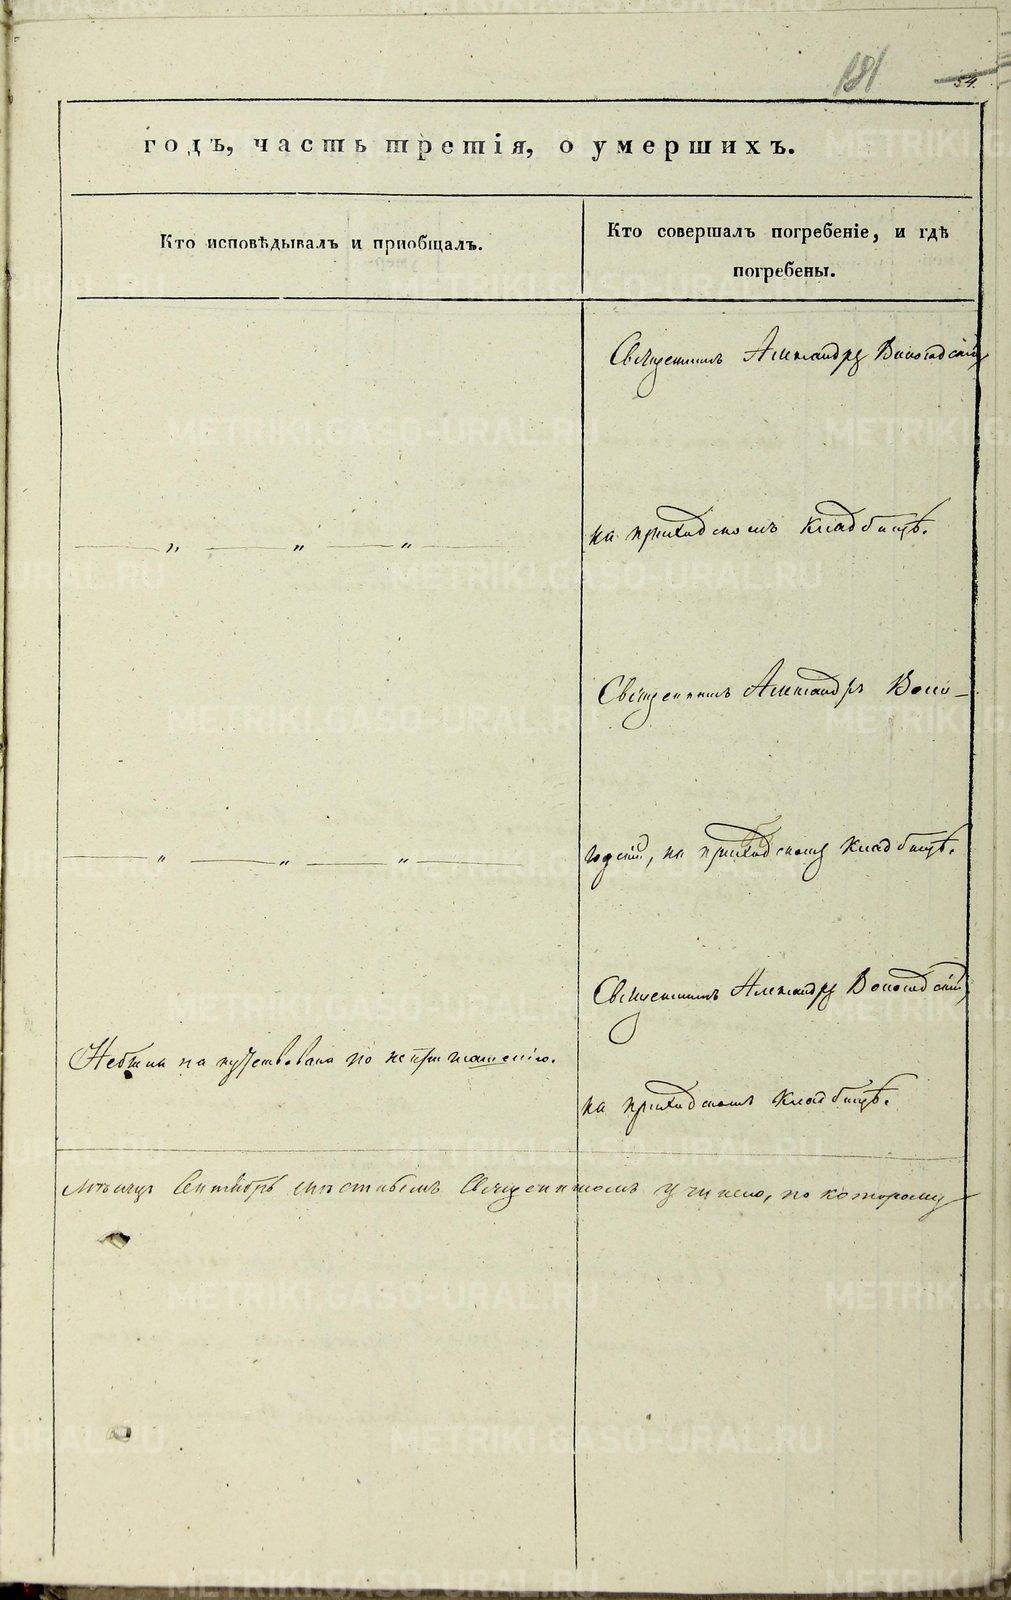 181
54.
годъ, часть третія, о умершихъ.
Кто исповѣдывалъ и пріобщалъ.
Кто совершалъ погребеніе, и гдѣ
погребены.
Священникъ Александръ Вологодскій
на приходскомъ кладбищѣ.
Священникъ Александръ Воло-
годскій, на приходскомъ кладбищѣ.
Священникъ Александръ Вологодскій,
Небыла напутствована по неприглашенію.
на приходскомъ кладбищѣ.
Сентябрь Священникомъ по которому
METRIKI.GASO-URAL.RU